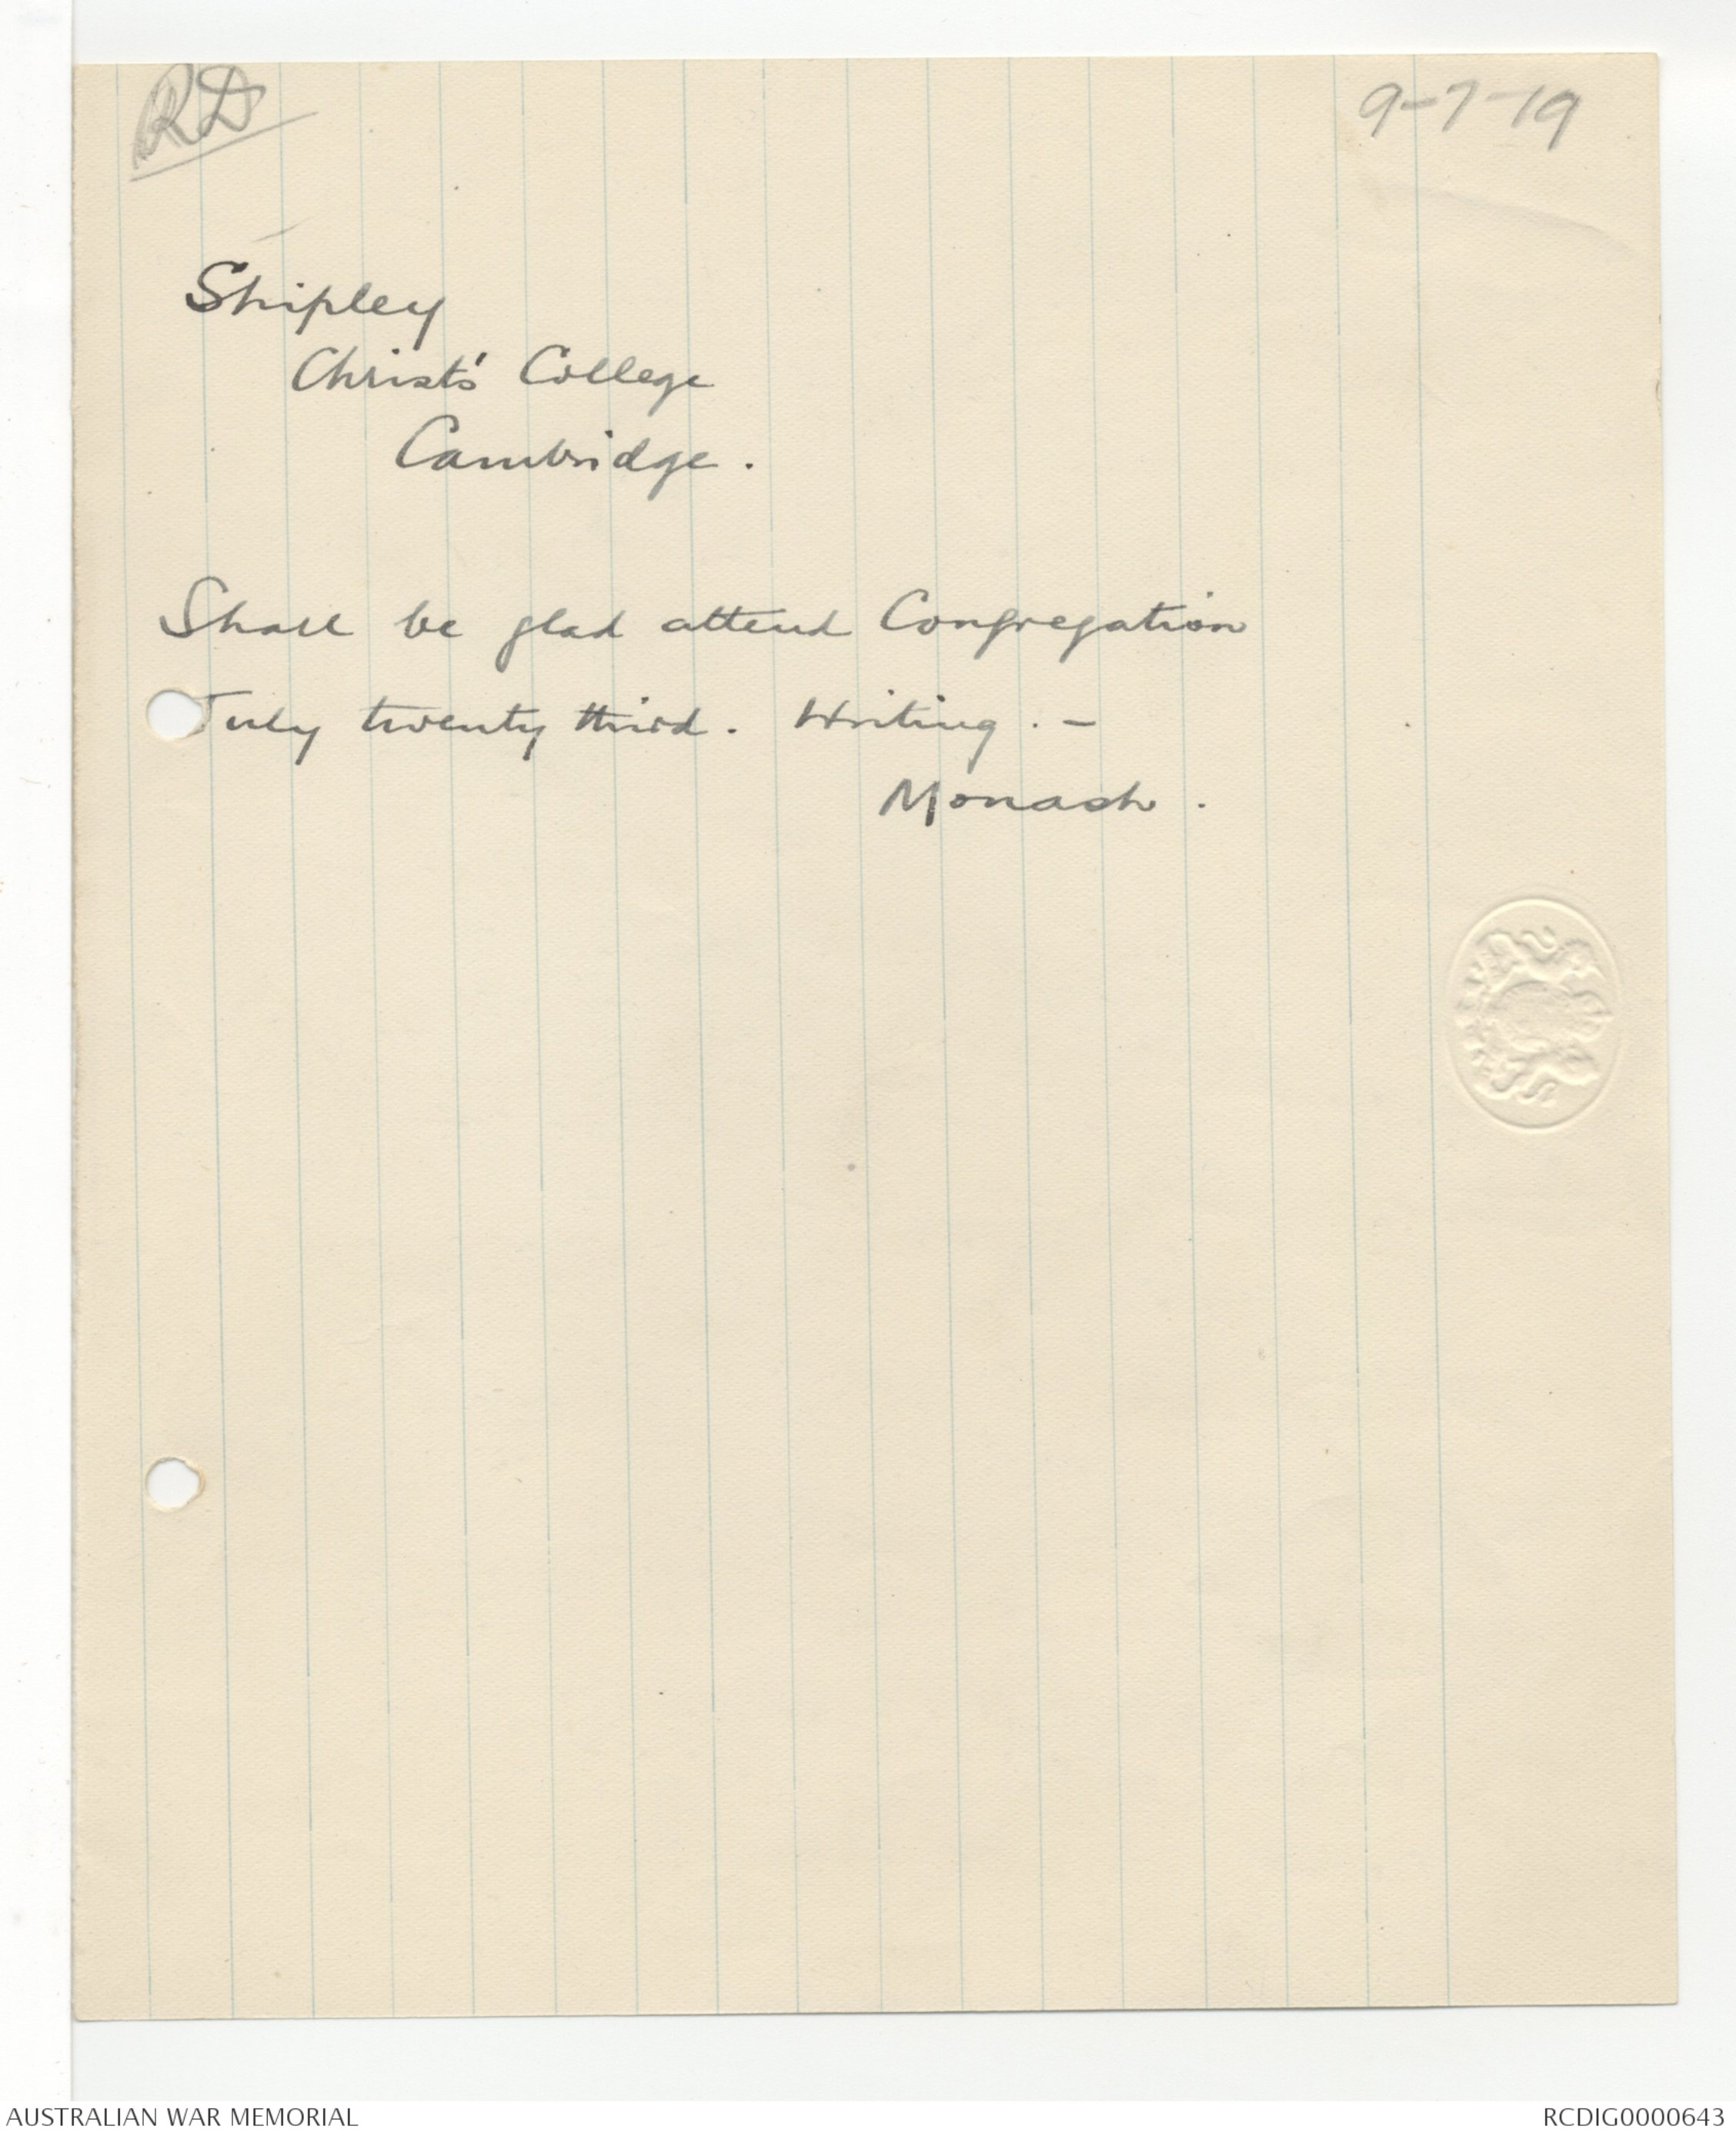 RD
9-7-19
Shipley
Christ's College
Cambridge.
Shall be glad attend Congregation
July twenty third. Writing. -
Monash.
AUSTRALIAN WAR MEMORIAL
RCDIG0000643